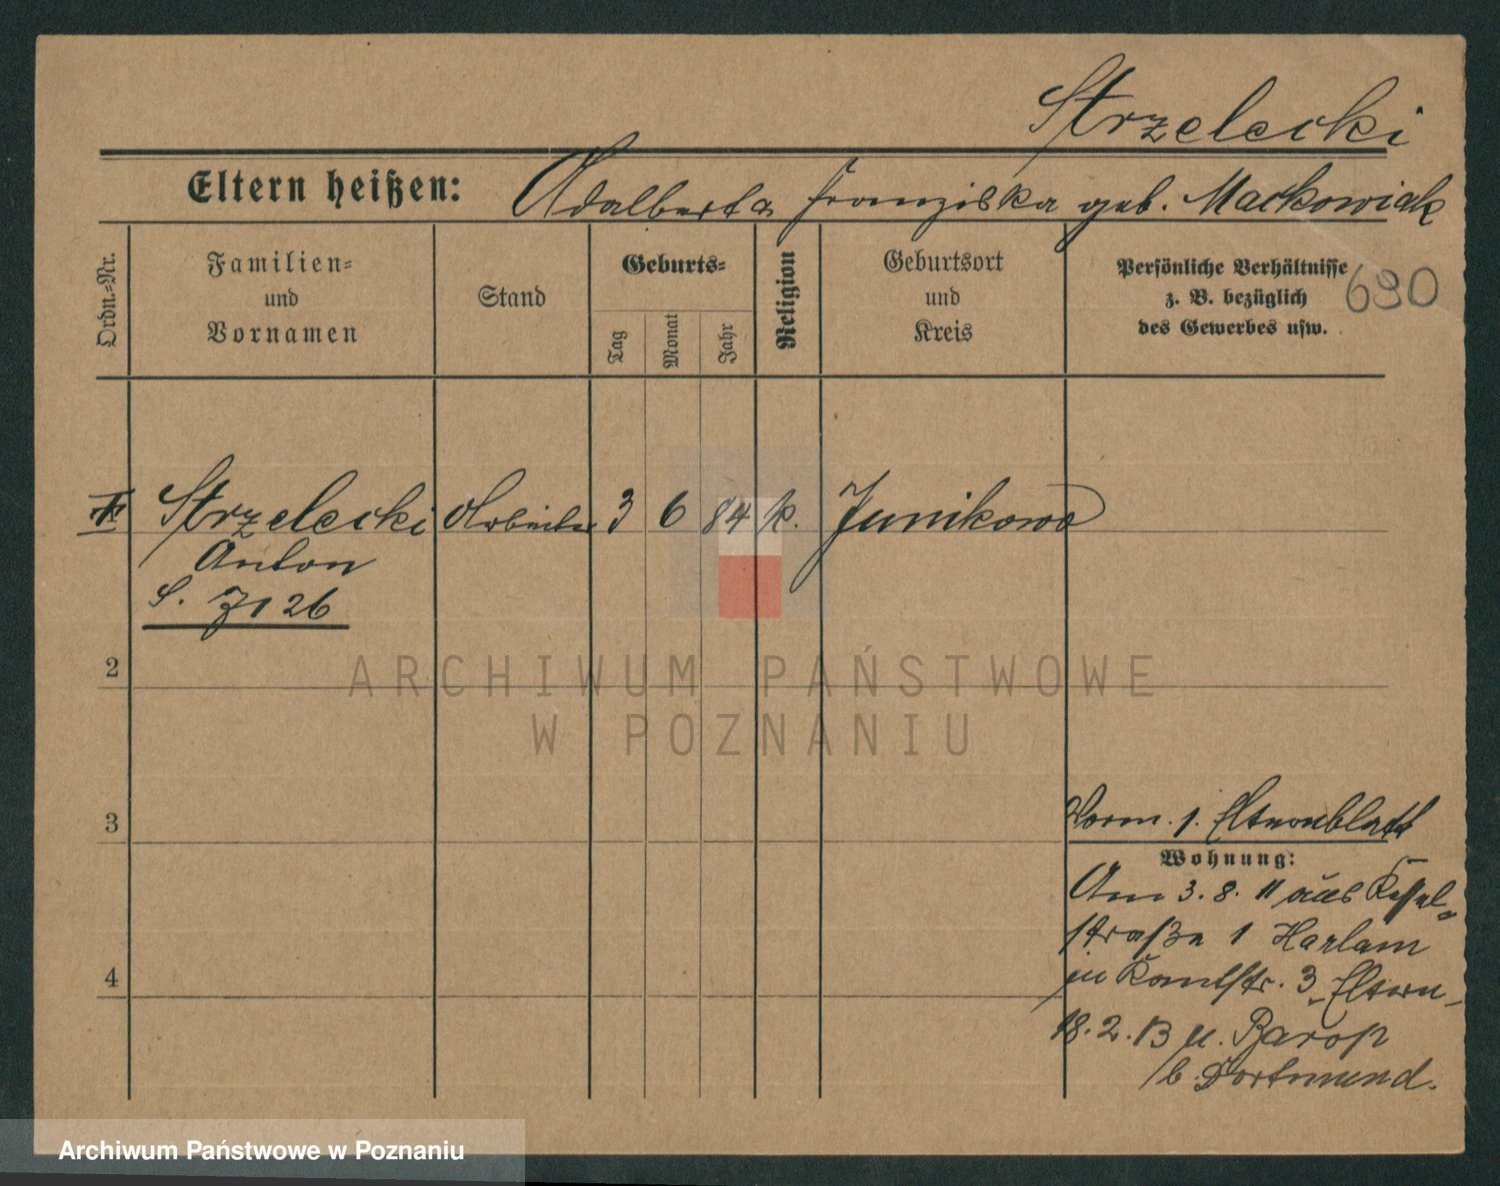 Strzelecki
Eltern heißen: Adalbert u Franziska geb. Maćkowiak
Ordn.=Nr.
Familien=
und
Vornamen
Stand
Geburts=
Tag
Monat
Jahr
Religion
Geburtsort
und
Kreis
Persönliche Verhältnisse
z. B. bezüglich
des Gewerbes usw.
690
Strzelecki Arbeiter 3 6 84 k. Junikowo
Anton
S. 7126
2
ARCHIWUM PAŃSTWOWE
W POZNANIU
3
Vorm. 1. Elternblatt
Wohnung:
Am 3. 8. 11 aus Kessel=
straße 1 Harlam
in Kantstr. 3 Eltern
4
18. 2. 13 u. Barop
b. Dortmund.
Archiwum Państwowe w Poznaniu